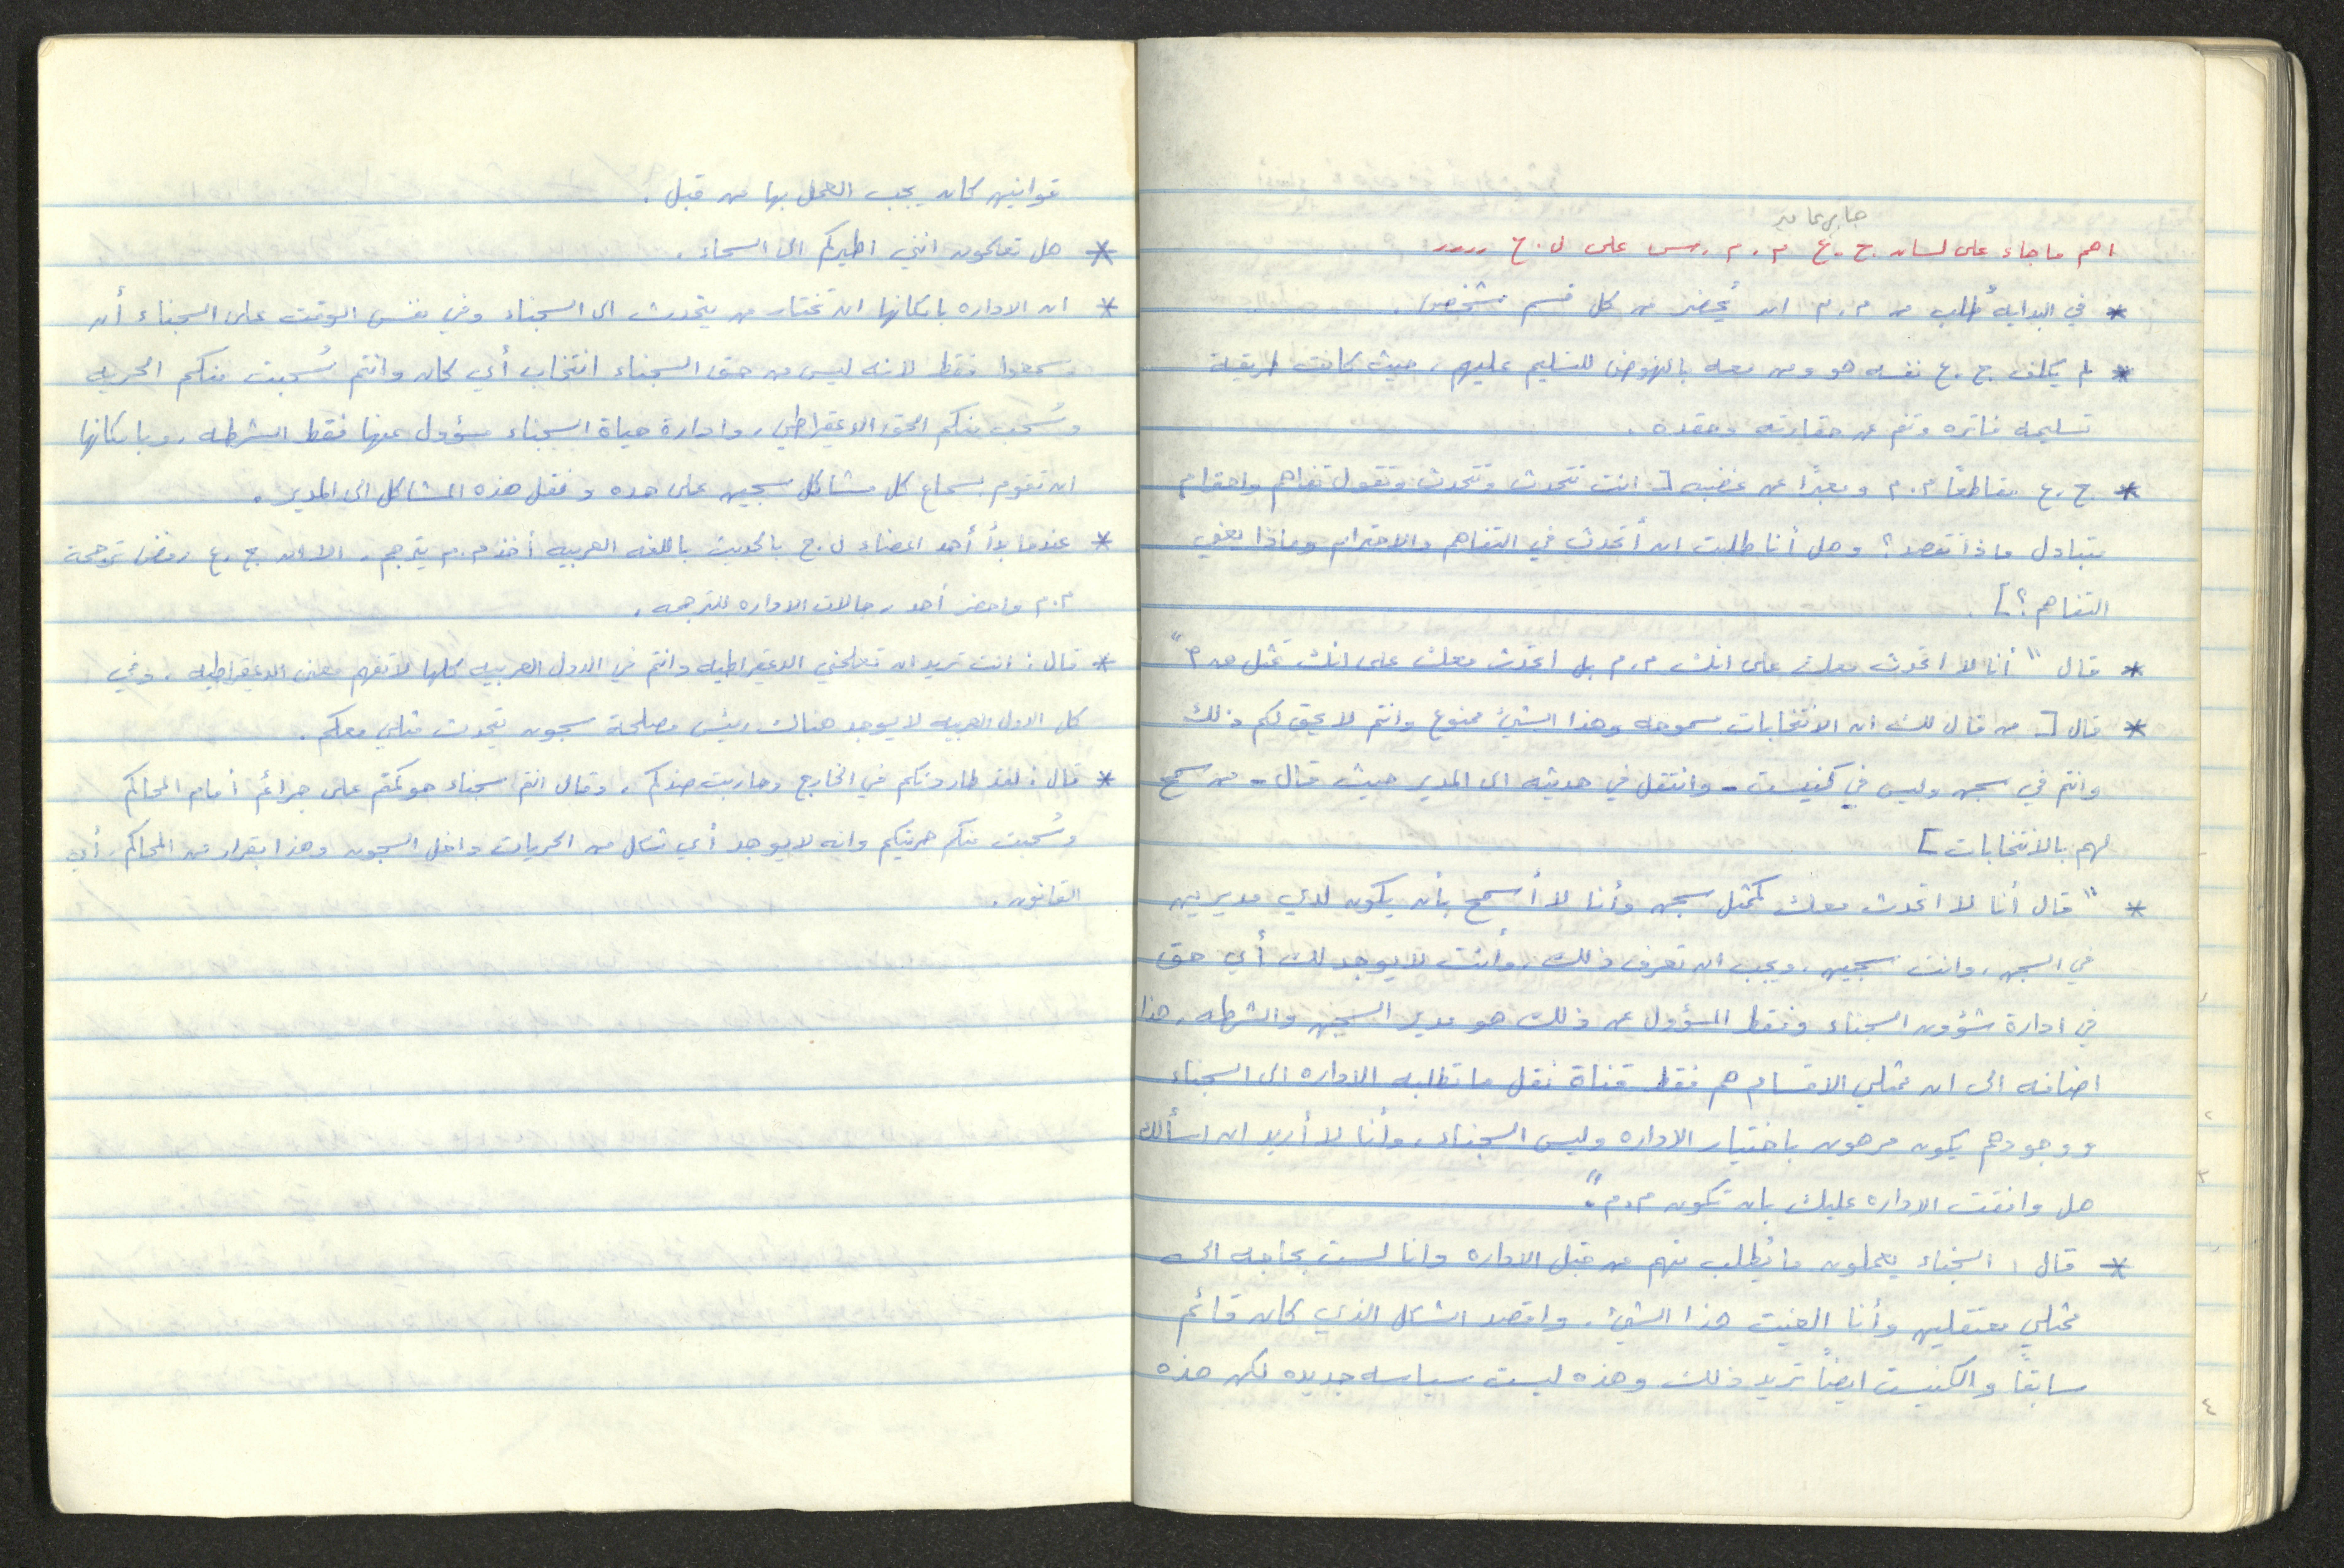 اهم ما جاء على لسان ج.ع م.م. س على ل.ح
* في البدايه طُلب من م.م ان يُحضر من كل قسم شخص.
* لم يكلف ج.ع نفسه هو ومن معه بالنهوض للتسليم عليهم، حيث كانت طريقة
تسليمه فاتره وتنم عن حقارته وحقده.
* ج.ع مقاطعاً م.م ومعبراً عن غضبه [ انت تتحدث وتتحدث وتقول تفاهم واحترام
متبادل ماذا تقصد؟ وهل أنا طلبت ان أتحدث في التفاهم والاحترام وماذا يعني
التفاهم؟].
* قال " أنا لا اتحدث معك على انك م.م بل اتحدث معك على انك تمثل
* قال [ من قال لك ان الانتخابات مسموحه وهذا الشيئ ممنوع وانتم لا يحق لكم ذلك
وانتم في سجن وليس في كنيست - وانتقل في حديثه الى المدير حيث قال - من سمح
لهم بالانتخابات ]
* " قال أنا لا اتحدث معك كممثل سجن وأنا لا أسمح بأن يكون لدي مديرين
في السجن، وانت سجين، ويجب ان تعرف ذلك، وأنت لا يوجد لك أي حق
في ادارة شؤون السجناء وفقط المسؤول عن ذلك هو مدير السجن والشرطه، هذا
اضافه الى ان ممثلي الاقسام هم فقط قناة نقل ما تطلبه الاداره الى السجناء
ووجودهم يكون مرهون باختيار الاداره وليس السجناء، وأنا لا أريد ان اسألك
هل وافقت الاداره عليك بان تكون م.م."
* قال: السجناء يعملون ما يُطلب منهم من قبل الاداره وانا لست بحاجه الى
ممثلي معتقلين وأنا الغيت هذا الشيئ. واقصد الشكل الذي كان قائم
سابقاً والكنيست ايضاً تريد ذلك وهذه ليست سياسه جديده لكن هذه
قوانين كان يجب العمل بها من قبل.
* هل تعلمون انني اطيركم الى السماء.
* ان الاداره بامكانها ان تختار من يتحدث الى السجناء وفي نفس الوقت على السجناء أن
يسمعوا فقط لانه ليس من حق السجناء انتخاب أي كان وانتم سُحبت منكم الحريه
وسُحب منكم الحق الديمقراطي، وادارة حياة السجناء مسؤول عنها فقط الشرطه، وبامكانها
ان تقوم بسماع كل مشاكل سجين على حده ونقل هذه المشاكل الى المدير.
* عندما بدأ أحد اعضاء ل.ح بالحديث باللغه العربيه أخذ م.م يترجم، الا ان ج.ع رفض ترجمة
م.م واحضر أحد رجالات الاداره للترجمه.
* قال: انت تريد ان تعلمني الديمقراطيه وانتم في الدول العربيه كلها لا تفهم معنى الديمقراطيه، وفي
كل الدول العربيه لا يوجد هناك رئيس مصلحة سجون يتحدث مثلي معكم.
* قال: لقد طاردتكم في الخارج وحاربت ضدكم، وقال انتم سجناء حوكمتم على جرائم أمام المحاكم
وسُحبت منكم حريتكم وانه لا يوجد أي شكل من الحريات داخل السجون وهذا بقرار من المحاكم، أي
القانون.